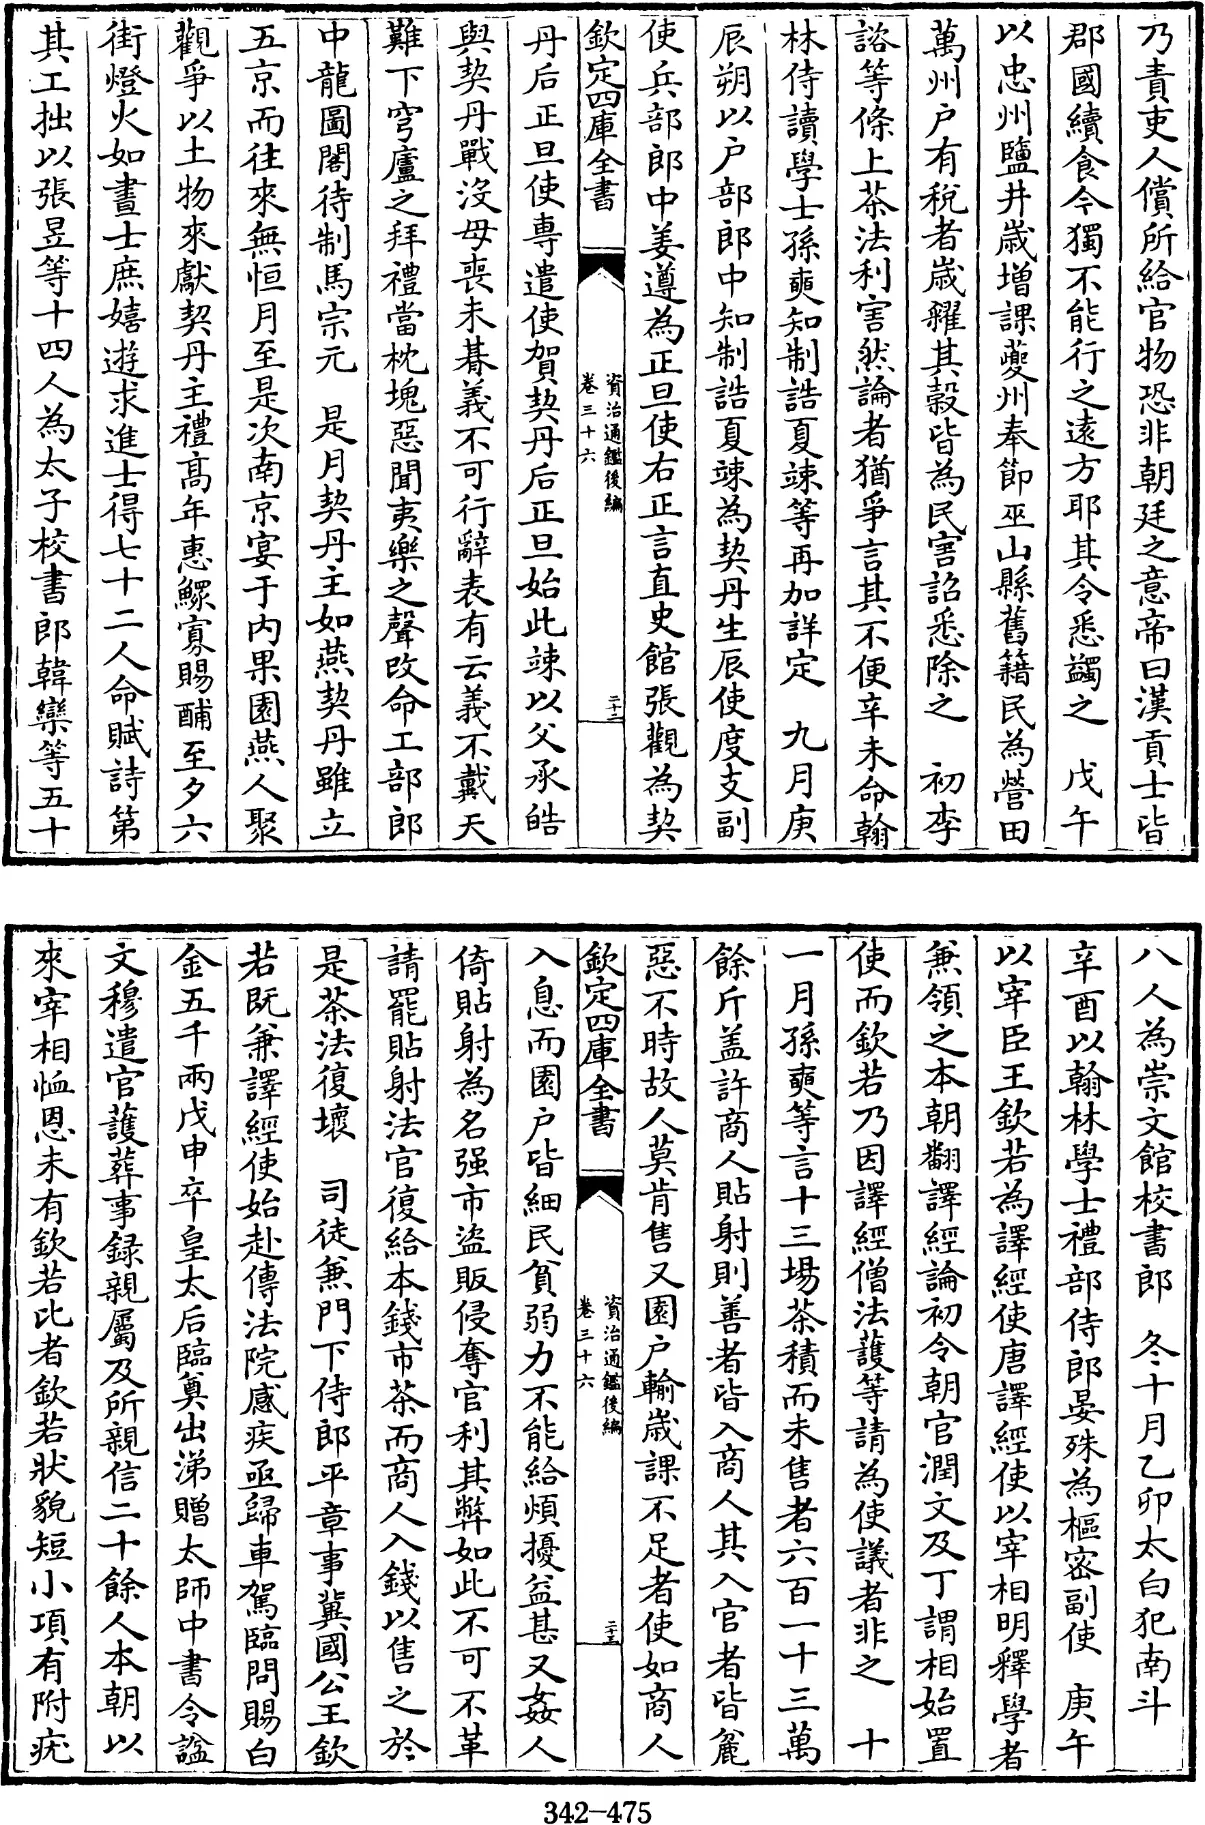 乃責吏人償所給官物恐非朝廷之意帝曰漢貢士皆
郡國續食今獨不能行之遠方耶其令悉蠲之　戊午
以忠州鹽井歲增課夔州奉節巫山縣舊籍民為營田
萬州户有稅者歲糴其穀皆為民害詔悉除之　初李
諮等條上茶法利害然論者猶爭言其不便辛未命翰
林侍讀學士孫奭知制誥夏竦等再加詳定　九月庚
辰朔以户部郎中知制誥夏竦為契丹生辰使度支副
使兵部郎中姜遵為正旦使右正言直史館張觀為契
欽定四庫全書
資治通鑑後編
卷三十六
二十二
丹后正旦使專遣使賀契丹后正旦始此竦以父承皓
與契丹戰沒母喪未朞義不可行辭表有云義不戴天
難下穹廬之拜禮當枕塊惡聞夷樂之聲改命工部郎
中龍圖閣待制馬宗元　是月契丹主如燕契丹雖立
五京而往來無恒月至是次南京宴于内果園燕人聚
觀爭以土物來獻契丹主禮高年惠鰥寡賜酺至夕六
街燈火如晝士庶嬉遊求進士得七十二人命賦詩第
其工拙以張昱等十四人為太子校書郎韓欒等五十
八人為崇文館校書郎　冬十月乙卯太白犯南斗
辛酉以翰林學士禮部侍郎晏殊為樞密副使　庚午
以宰臣王欽若為譯經使唐譯經使以宰相明釋學者
兼領之本朝翻譯經論初令朝官潤文及丁謂相始置
使而欽若乃因譯經僧法護等請為使議者非之　十
一月孫奭等言十三場茶積而未售者六百一十三萬
餘斤蓋許商人貼射則善者皆入商人其入官者皆麄
惡不時故人莫肯售又園户輸歲課不足者使如商人
欽定四庫全書
資治通鑑後編
卷三十六
二十三
入息而園户皆細民貧弱力不能給煩擾益甚又姦人
倚貼射為名强市盜販侵奪官利其弊如此不可不革
請罷貼射法官復給本錢市茶而商人入錢以售之於
是茶法復壞　司徒兼門下侍郎平章事冀國公王欽
若既兼譯經使始赴傳法院感疾亟歸車駕臨問賜白
金五千兩戊申卒皇太后臨奠出涕贈太師中書令諡
文穆遣官護葬事録親屬及所親信二十餘人本朝以
來宰相恤恩未有欽若比者欽若狀貌短小項有附疣
342-475